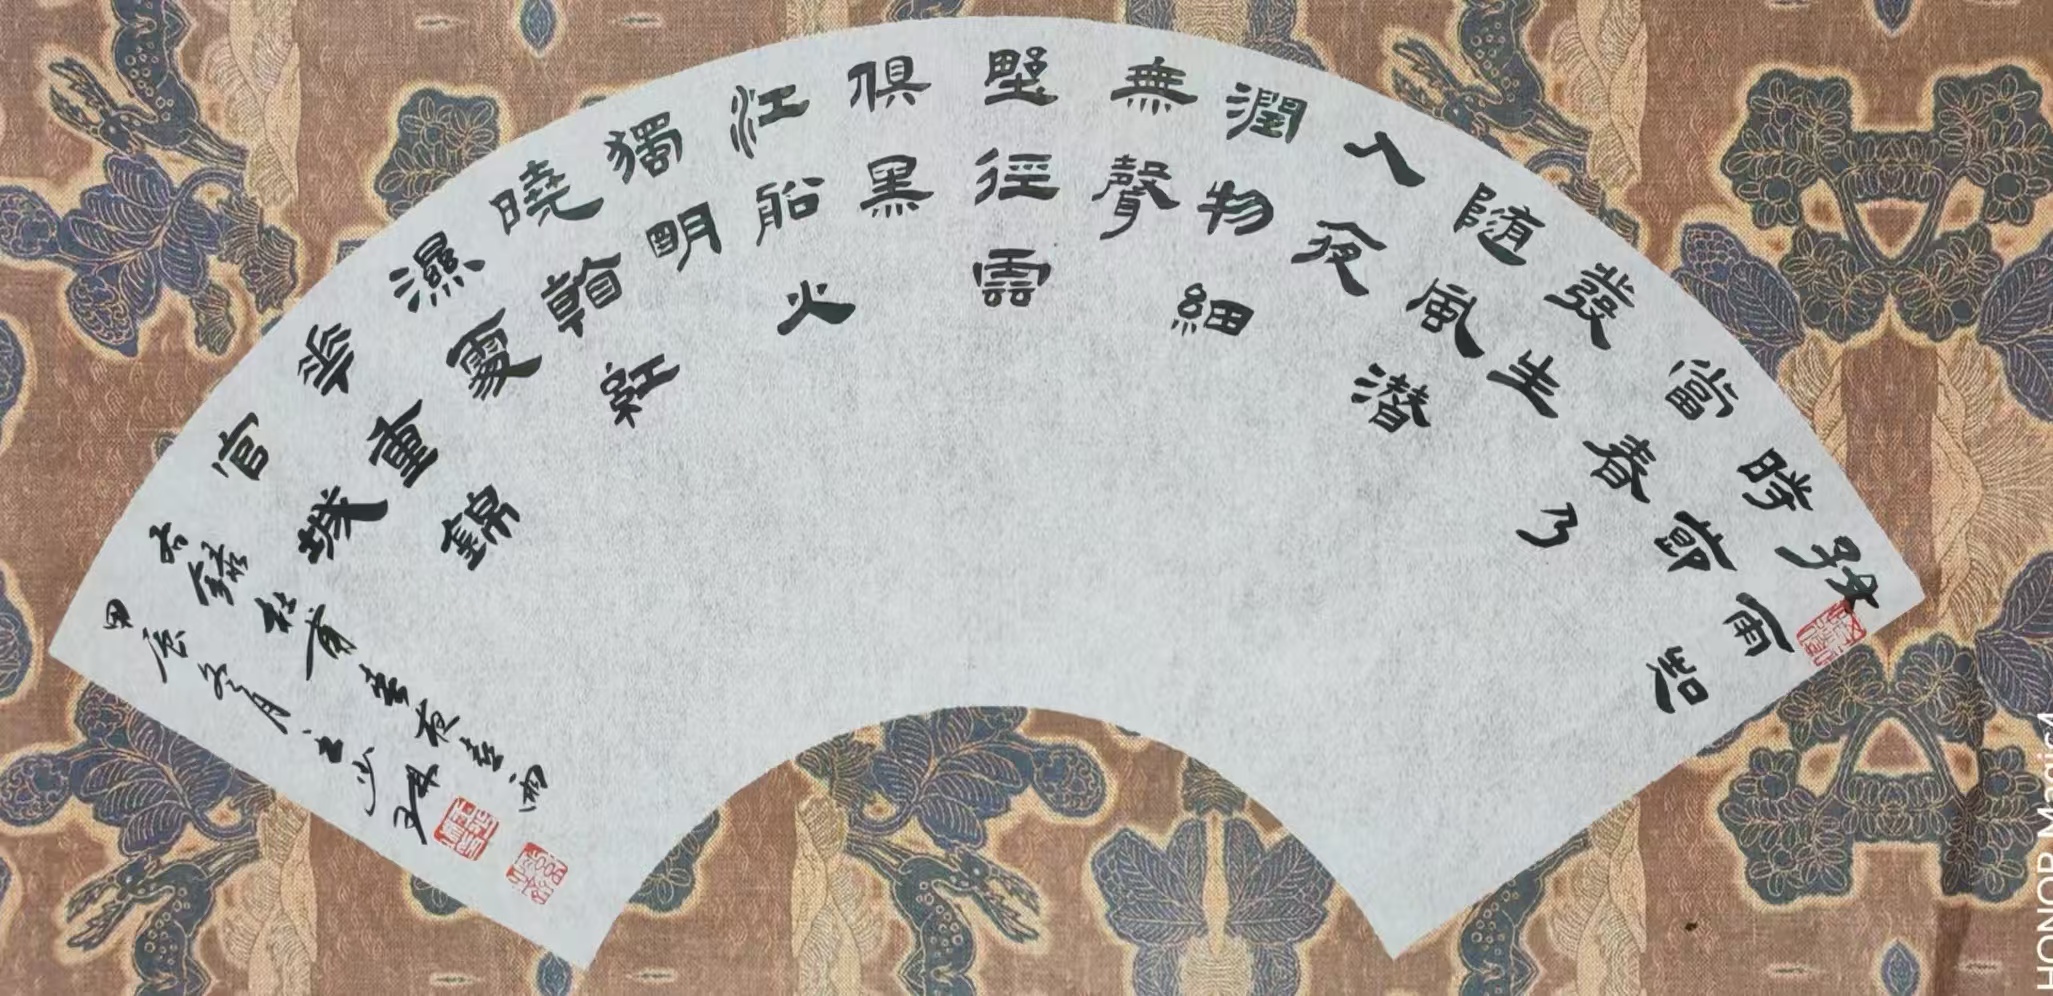 好雨知
時節
當春乃
發生
随風潜
入夜
潤物細
無聲
野徑雲
俱黑
江船火
獨明
曉看紅
濕處
華重錦
官城
右錄杜甫春夜喜雨
甲辰冬月
HONOR Magic4